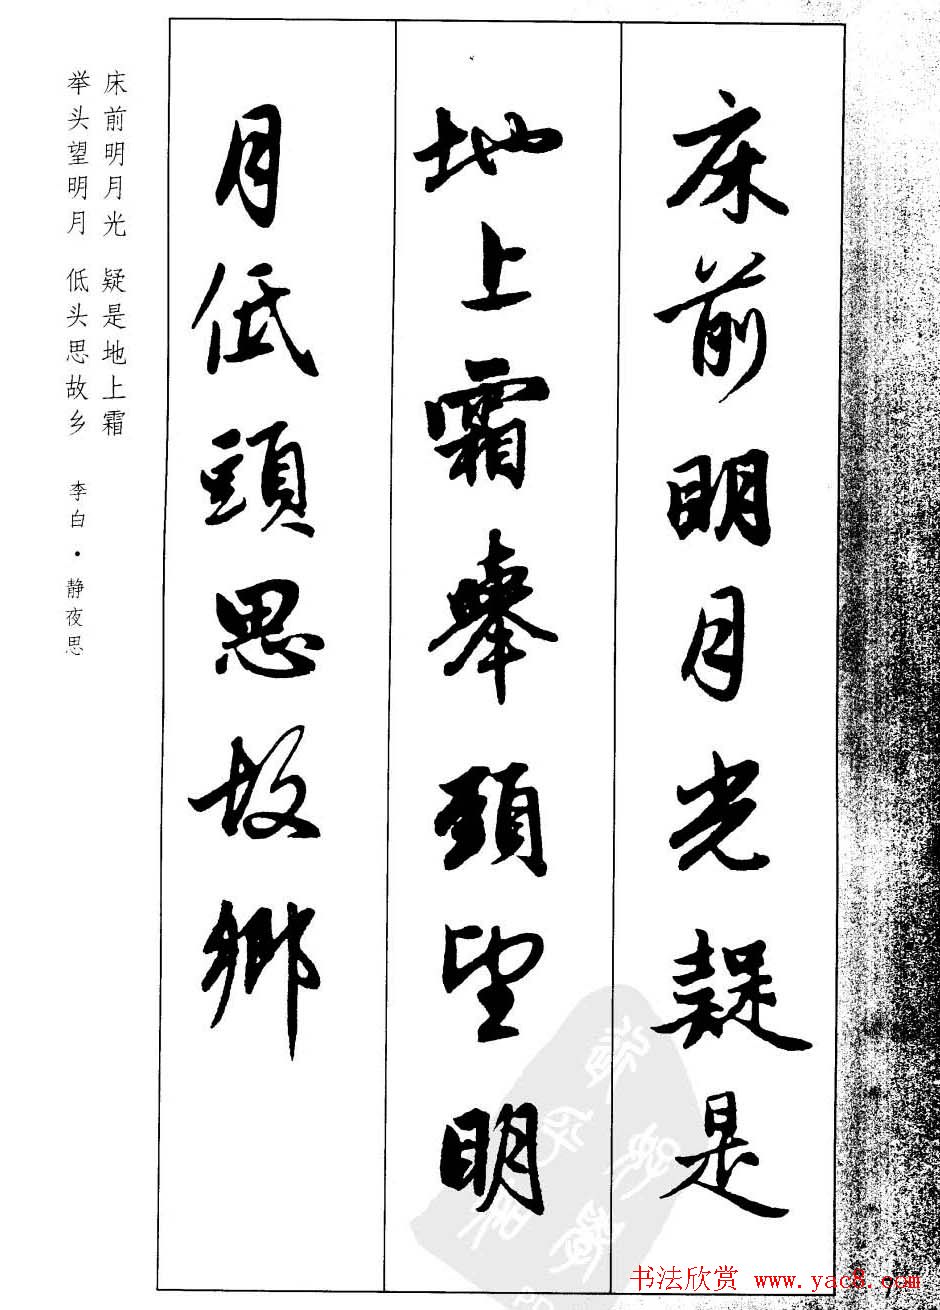 床前明月光疑是
地上霜舉頭望明
月低頭思故鄉
床前明月光 疑是地上霜
举头望明月 低头思故乡
李白·静夜思
书法欣赏 www.yac8.com
7